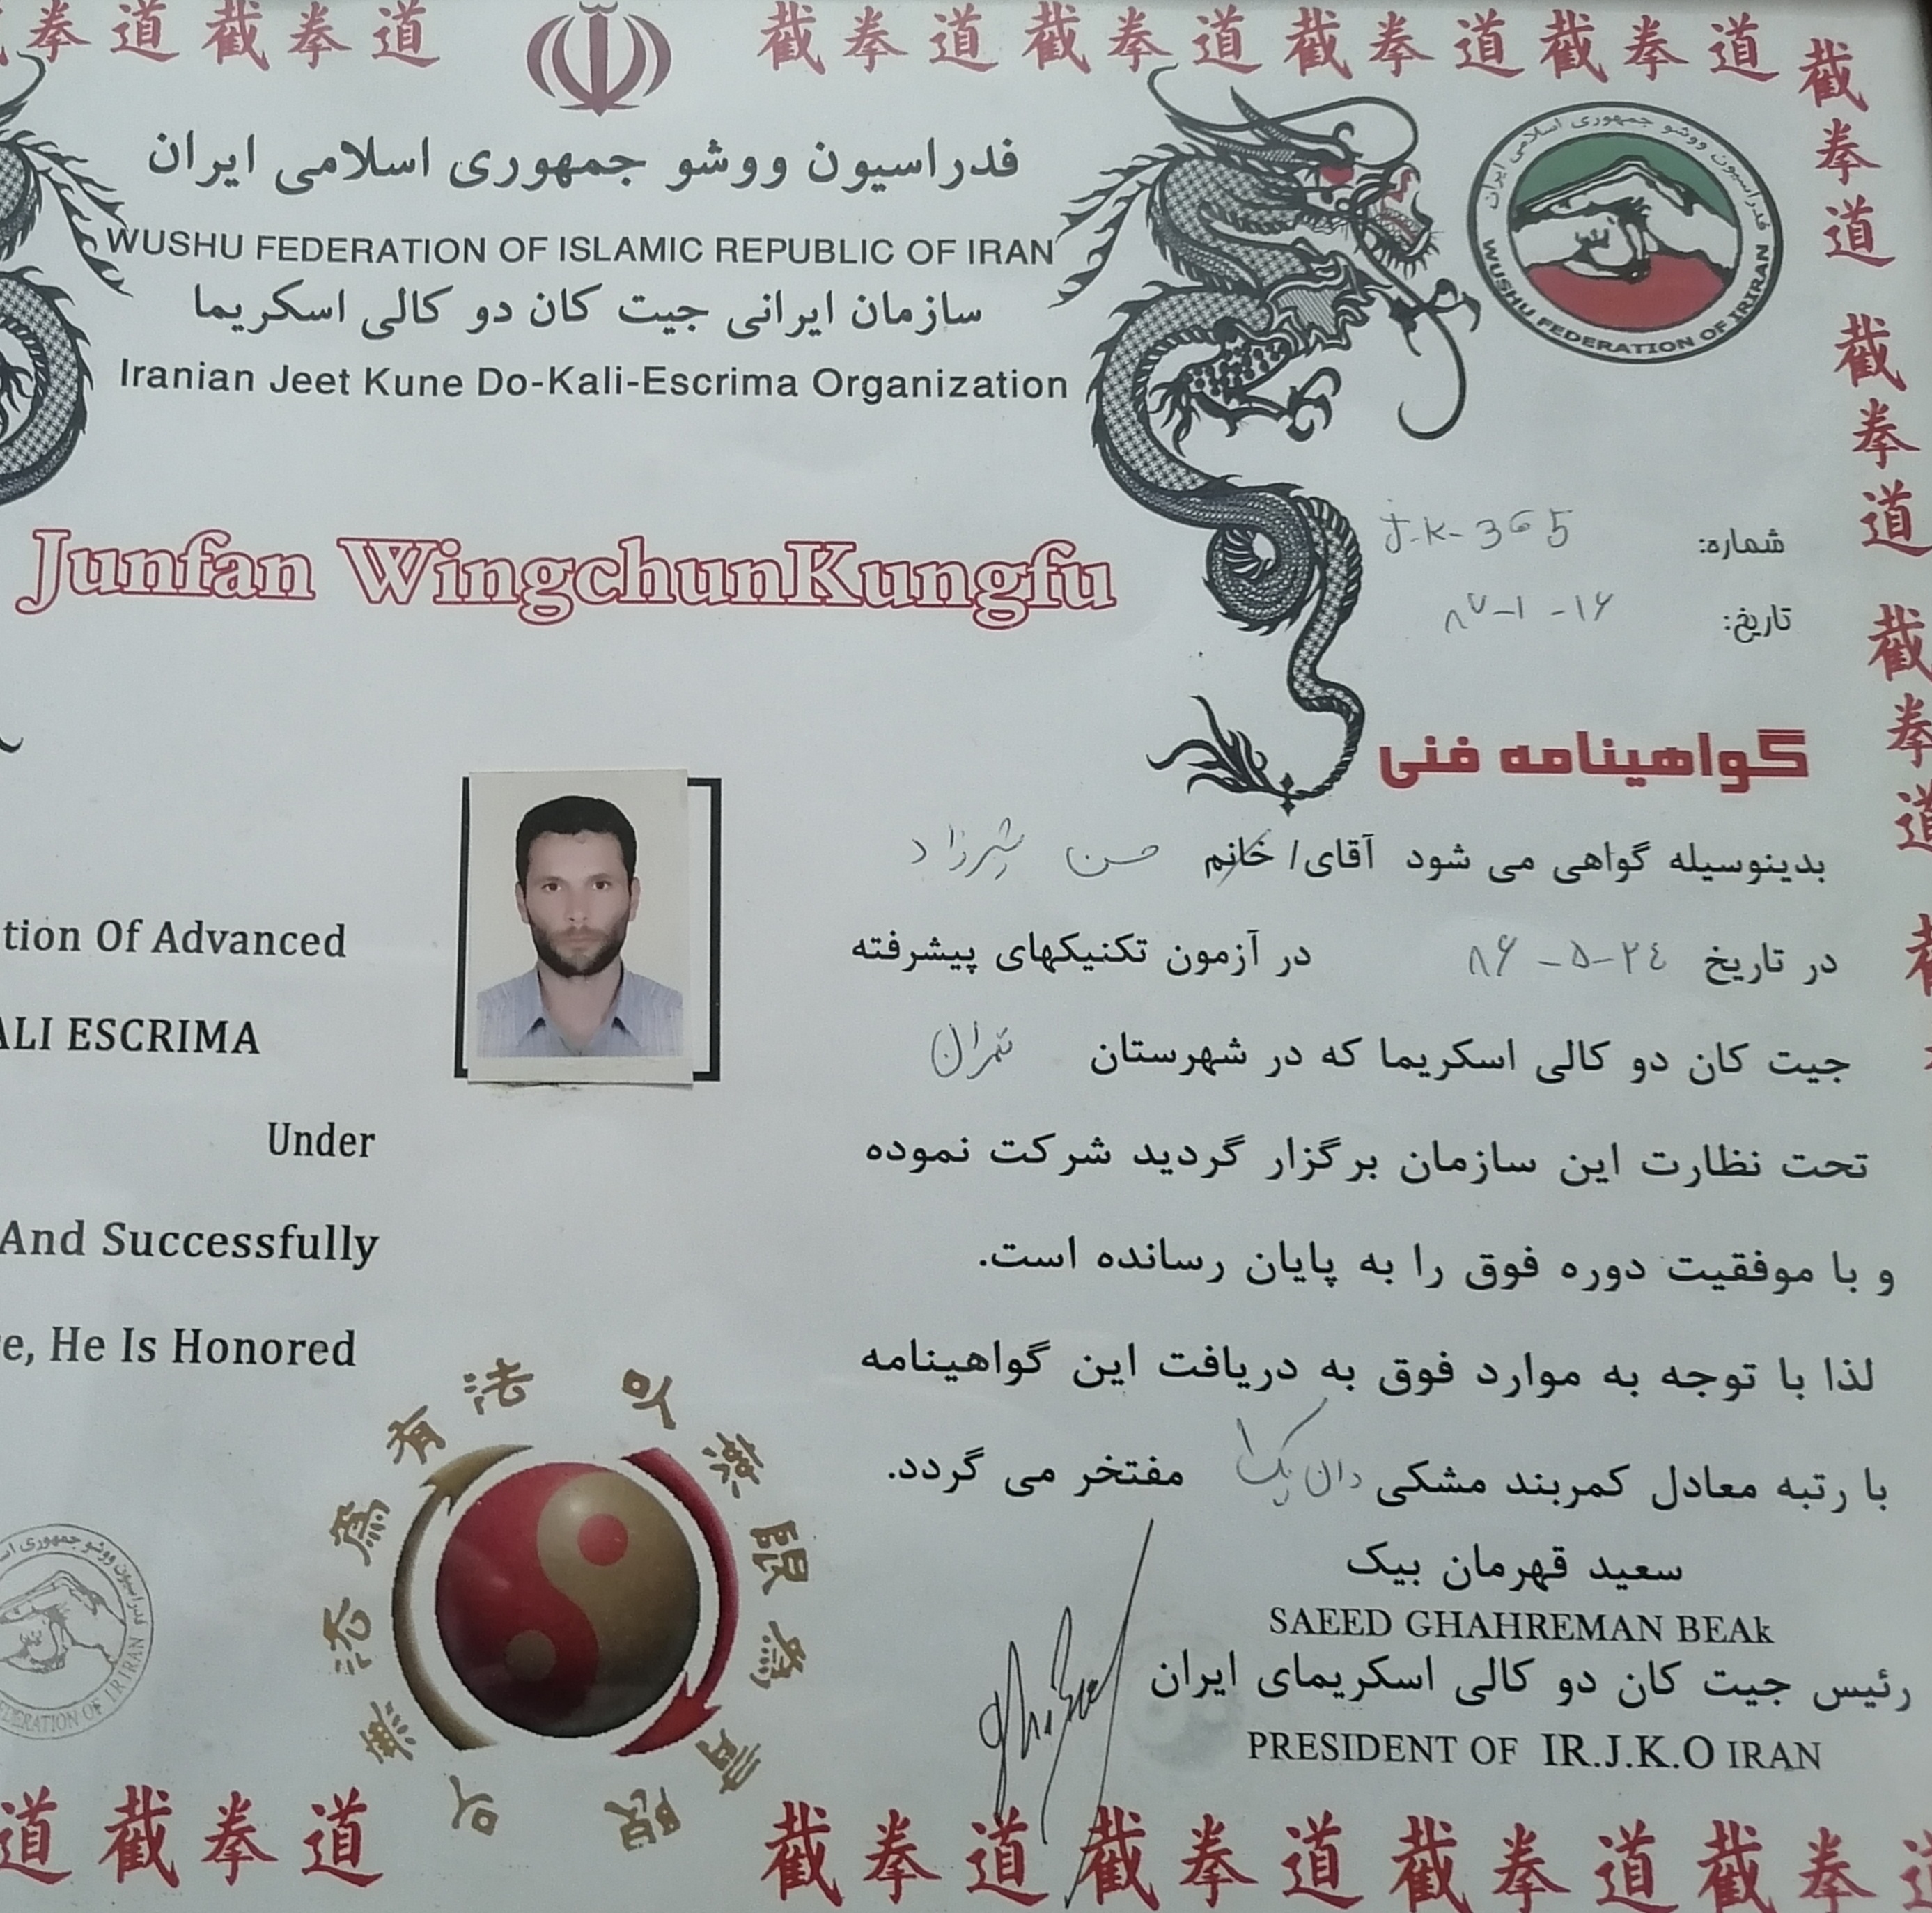 拳道截拳道 截拳道截拳道截拳道截拳道
فدراسیون ووشو جمهوری اسلامی ایران
WUSHU FEDERATION OF ISLAMIC REPUBLIC OF IRAN
سازمان ایرانی جیت کان دو کالی اسکریما
Iranian Jeet Kune Do-Kali-Escrima Organization
فدراسیون ووشو جمهوری اسلامی ایران
WUSHU FEDERATION OF IRIRAN
Junfan WingchunKungfu
شماره: J-K-365
تاریخ: ۸۷-۱-۱۶
گواهینامه فنی
بدینوسیله گواهی می شود آقای/ خانم حسن شیرزاد
در تاریخ ۸۶-۵-۲۴ در آزمون تکنیکهای پیشرفته
جیت کان دو کالی اسکریما که در شهرستان تهران
تحت نظارت این سازمان برگزار گردید شرکت نموده
و با موفقیت دوره فوق را به پایان رسانده است.
لذا با توجه به موارد فوق به دریافت این گواهینامه
با رتبه معادل کمربند مشکی دان یک مفتخر می گردد.
سعید قهرمان بیک
SAEED GHAHREMAN BEAk
رئیس جیت کان دو کالی اسکریمای ایران
PRESIDENT OF IR.J.K.O IRAN
tion Of Advanced
ALI ESCRIMA
Under
And Successfully
e, He Is Honored
以無限為有限
以無法為有法
截拳道截拳道截拳道截拳
道截拳道 截拳道截拳道截拳道截拳道